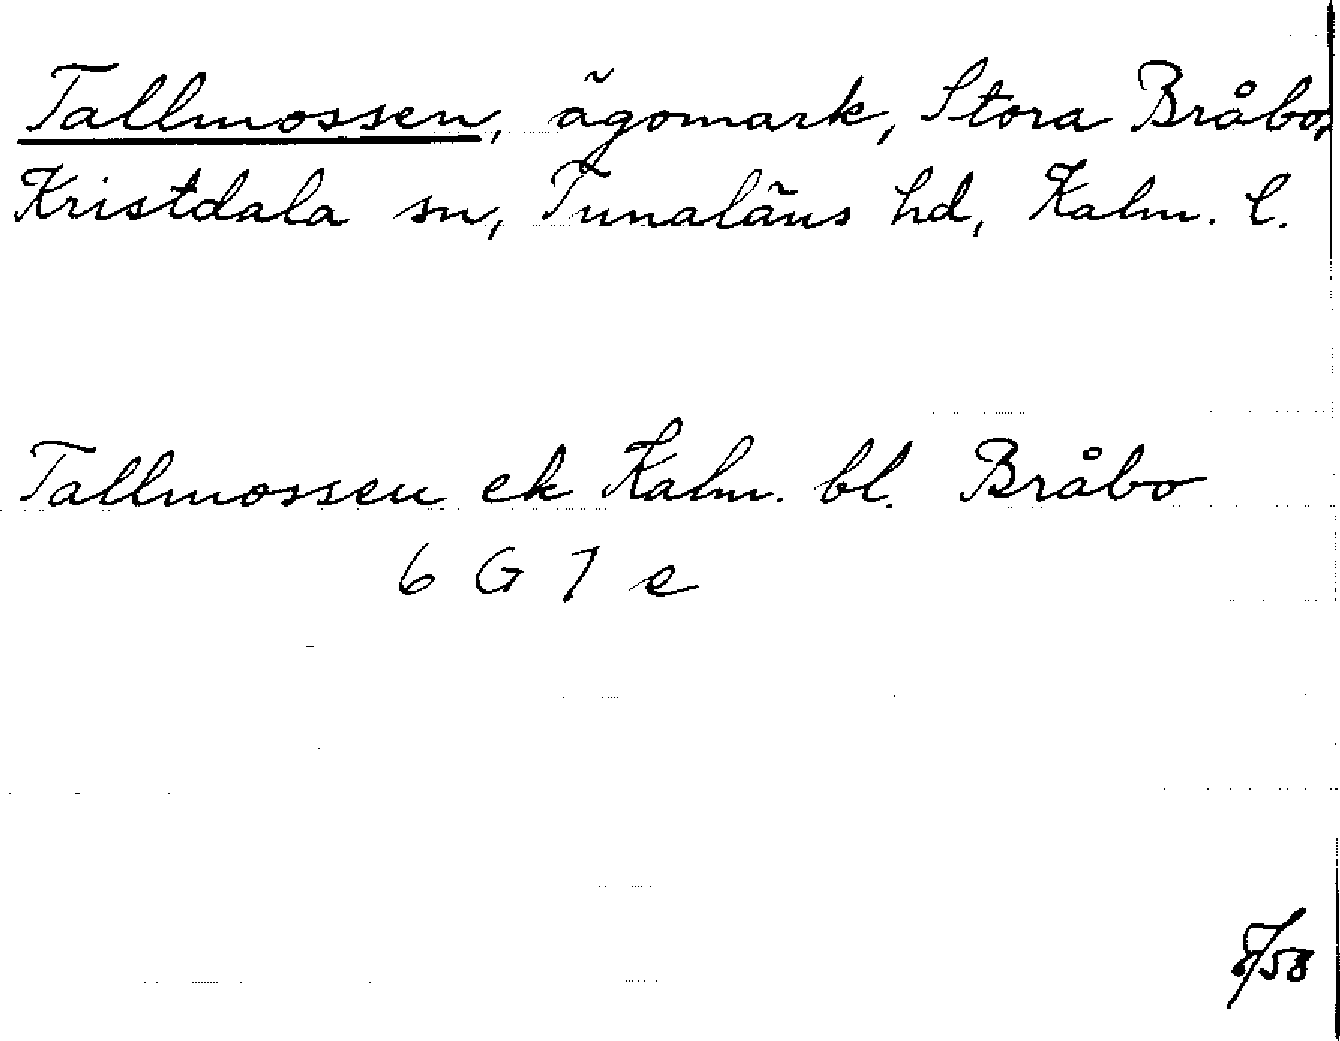 Tallmossen, ägomark, Stora Bråbo,
Kristdala sn, Tunaläns hd, Kalm. l.
Tallmossen ek Kalm. bl. Bråbo
6 G 7 e